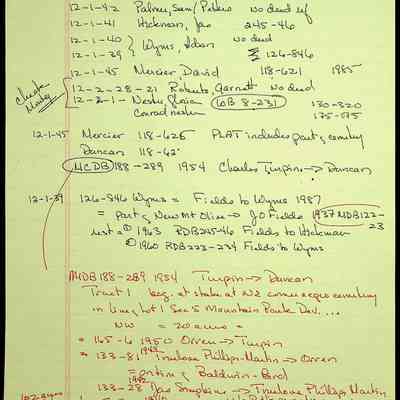 12-1-42 Palmer, Sam/Peters no deed ref
12-1-41 Hickman, Jas 245-46
12-1-40 no deed
12-1-39 Wyms, 126-846
12-1-45 Mercier, David 118-621 1985
12-2-28-21 Roberts, Garnett no deed
12-2-1- Gloria WB 8-231 130-820
Conrad 175-575
12-1-45 Mercier 118-625 Plat includes part of cemetery
Duncan 118-62
MCDB 188-289 1954 Charles Turpin → Duncan
12-1-39 126-846 Wyms = Fields to Wyms 1987
= part of New Mt Olive → JO Fields 1937 MDB122-23
① 1963 RDB225-46 Fields to Hickman
② 1960 RDB223-234 Fields to Wyms
MDB188-289 1954 Turpin → Duncan
Tract 1 beg. at stake at NE corner negro cemetery
in line, lot 1 Sec 5 Mountain
NW = 20 acres =
= 165-6 1950 Orren → Turpin
= 133-81 1943 Truelove Phillips Martin → Orren
= portion of Baldwin
133-28 1942 Jas → Truelove Phillips Martin